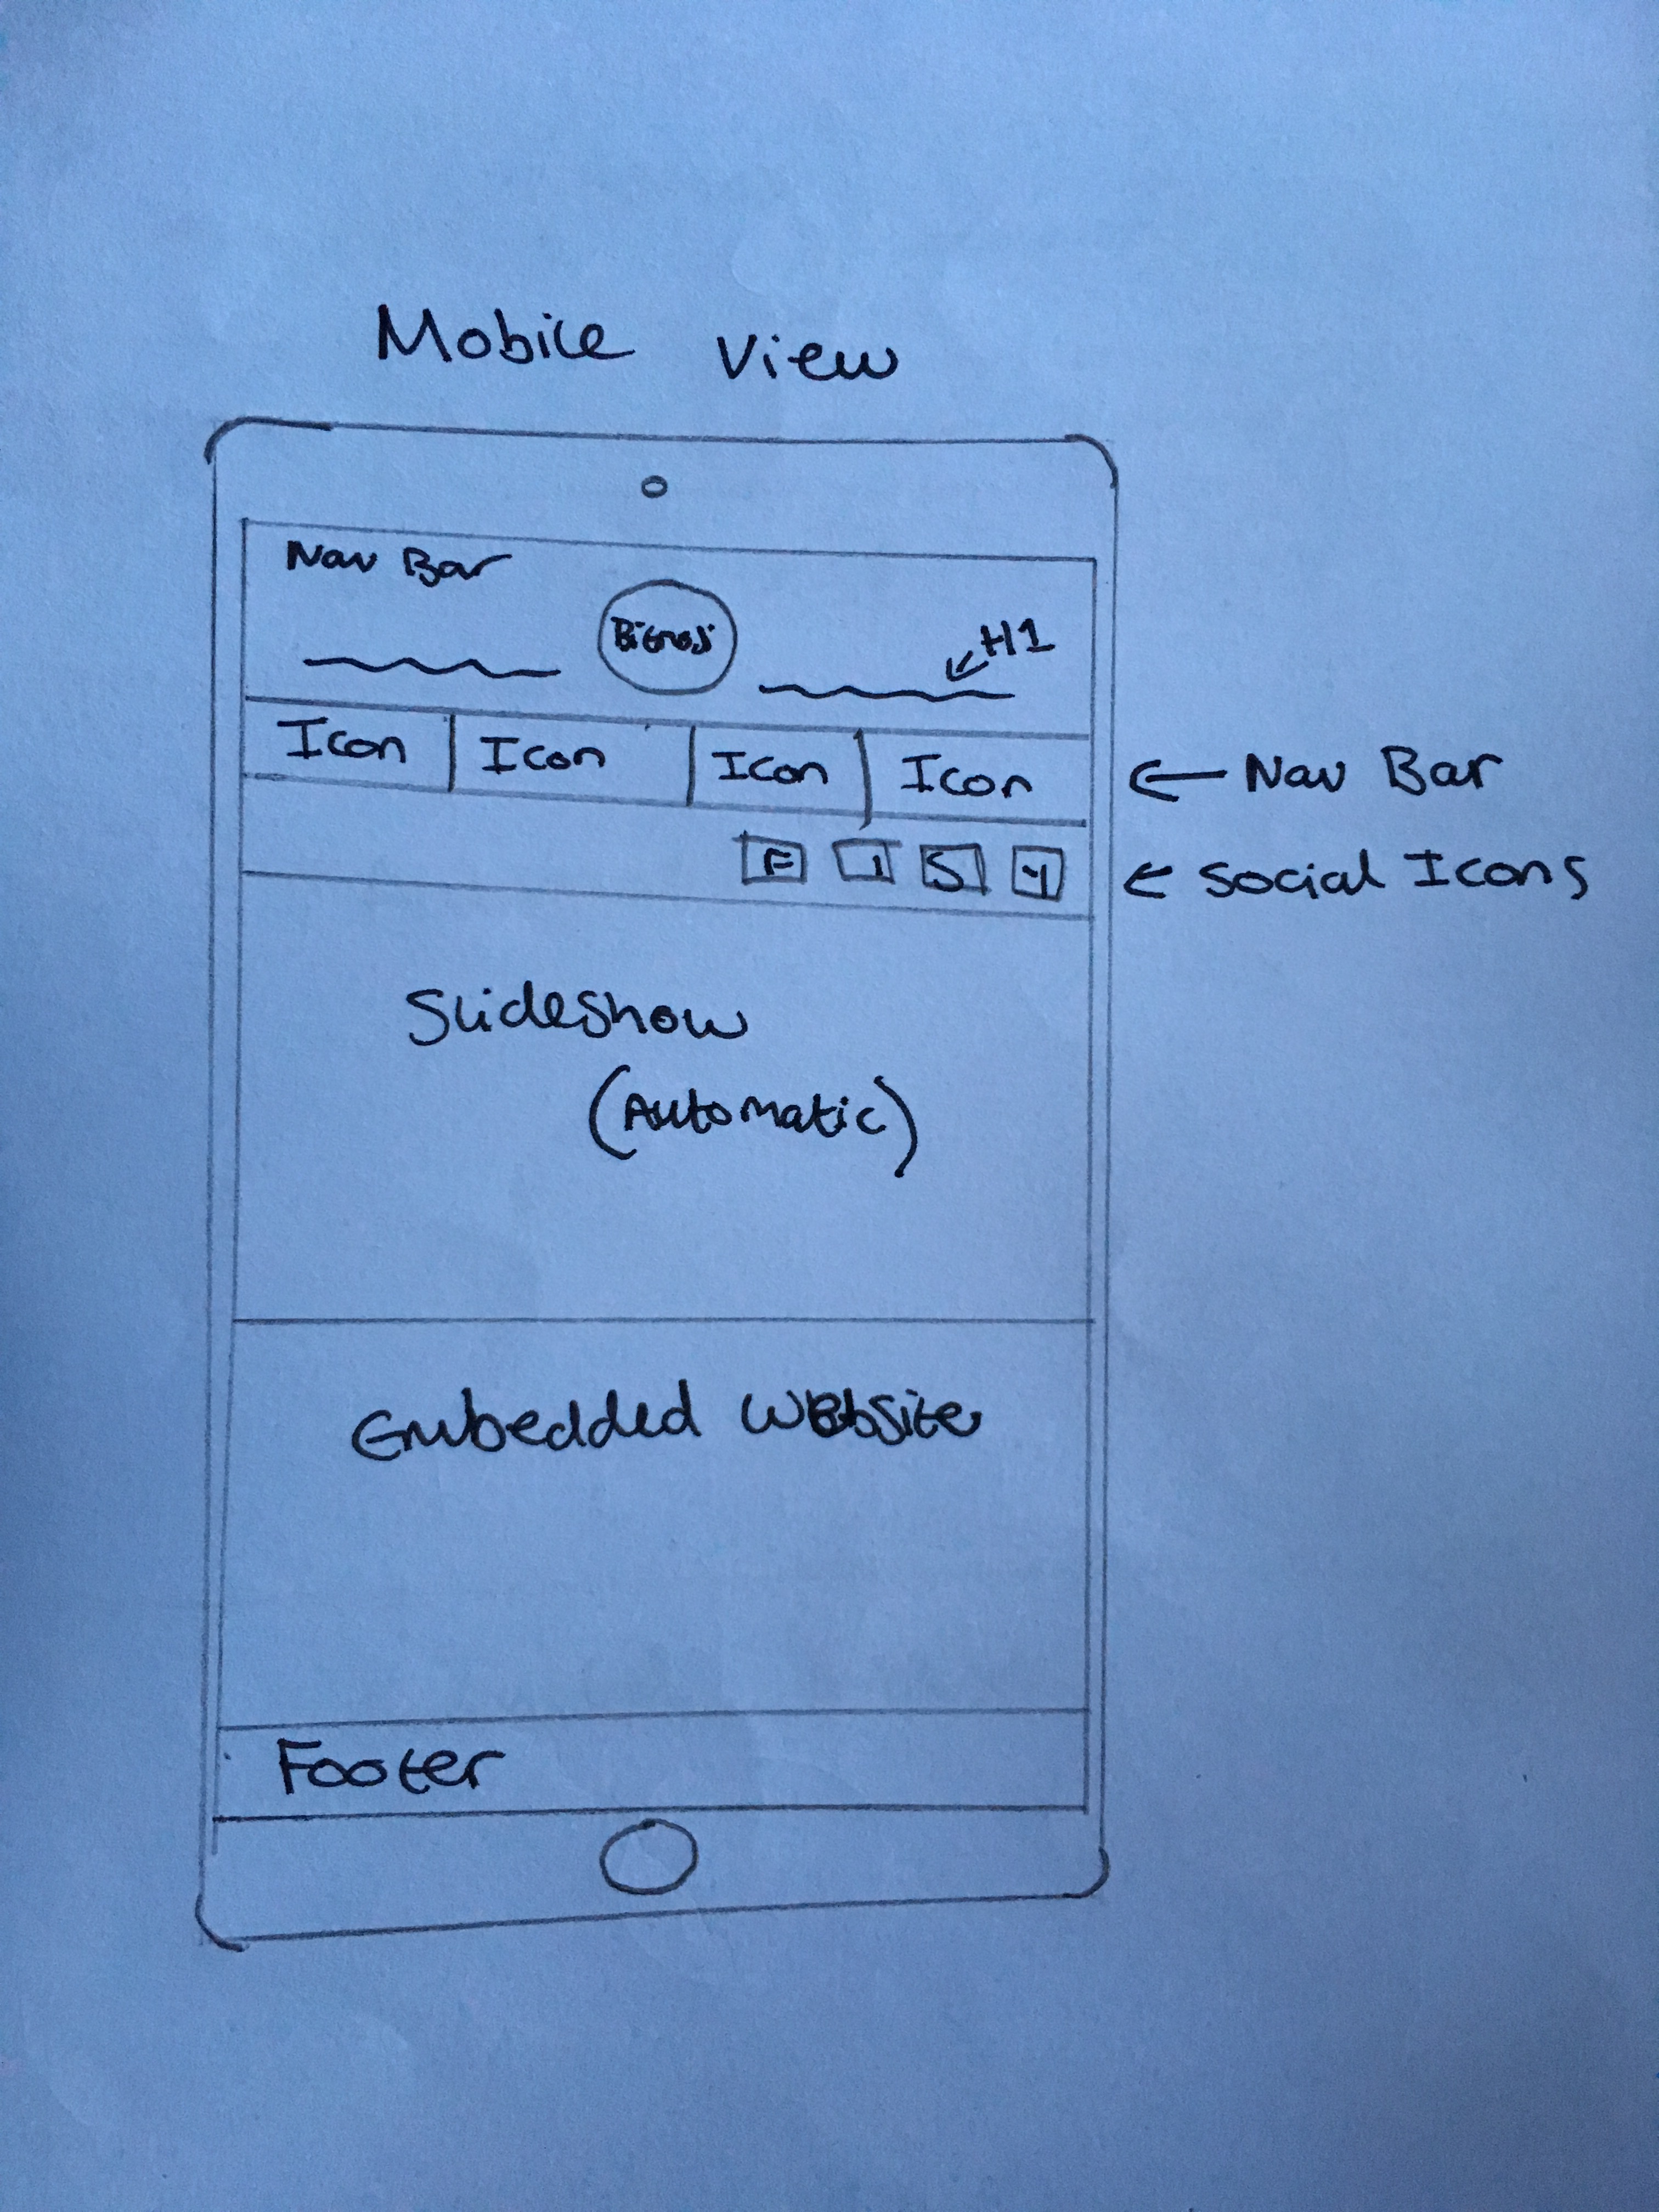 Mobile View
Nav Bar
Bitmoji
H1
Icon Icon Icon Icon
Nav Bar
F I S Y
Social Icons
Slideshow
(Automatic)
Embedded Website
Footer